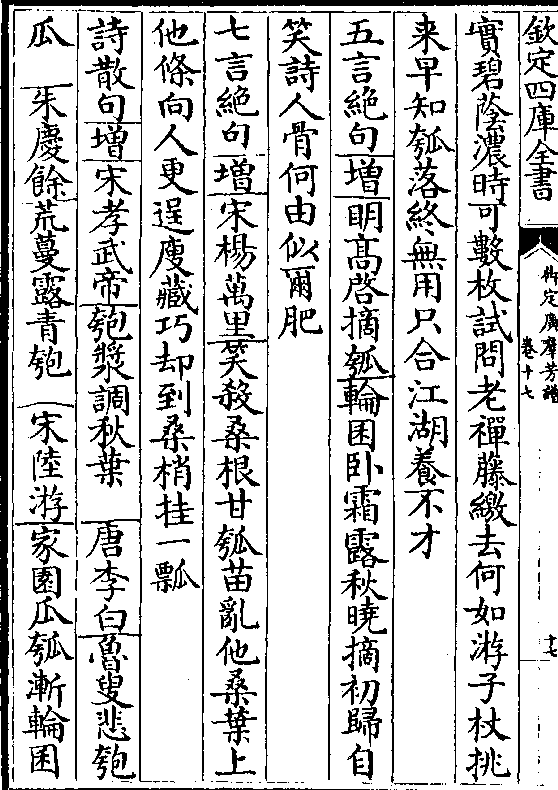 欽定四庫全書
御定廣羣芳譜
卷十七
十七
實碧蔭濃時可數枚試問老禪藤繳去何如游子杖挑
来早知瓠落終無用只合江湖養不才
五言絶句增明高啓摘瓠輪囷臥霜露秋曉摘初歸自
笑詩人骨何由似爾肥
七言絶句增宋楊萬里笑殺桑根甘瓠苗亂他桑葉上
他條向人更逞廋藏巧却到桑梢挂一瓢
詩散句增宋孝武帝匏漿調秋葉 唐李白魯叟悲匏
瓜 朱慶餘荒蔓露青匏 宋陸游家園瓜瓠漸輪囷